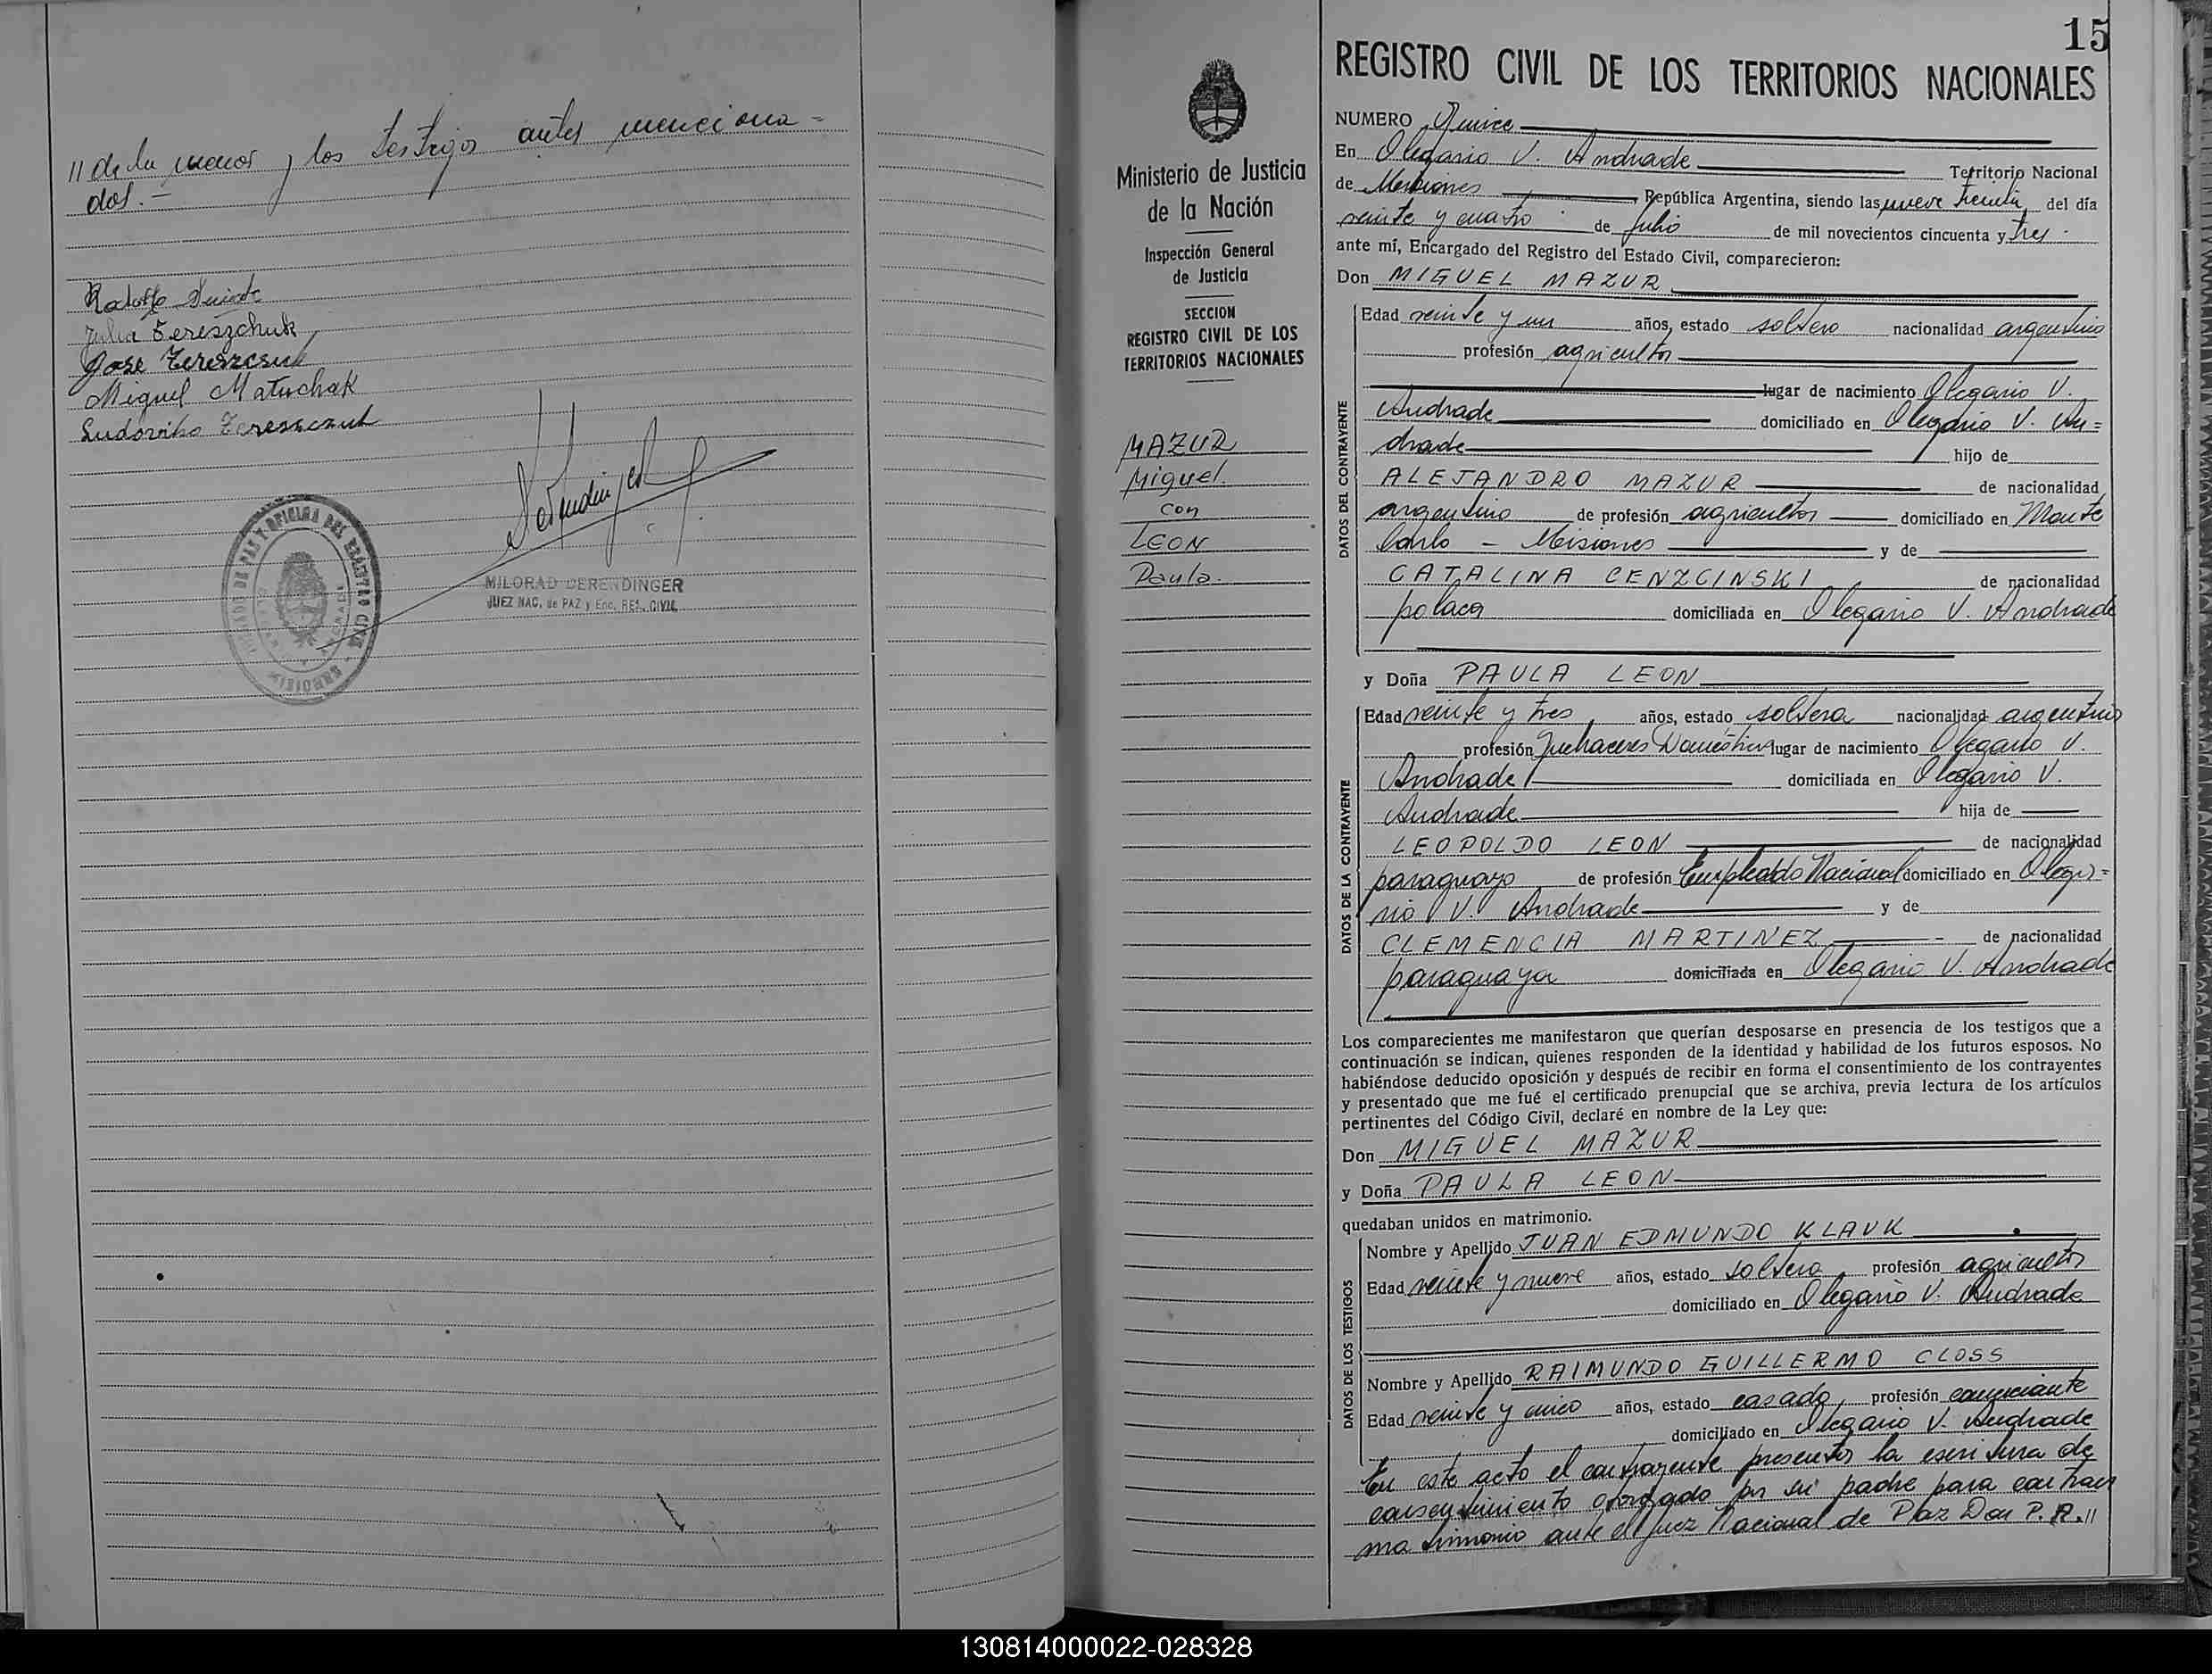 // de la menor y los testigos antes menciona=
dos.-
Rodolfo
Julia Tereszchuk
Jose Tereszczuk
Miguel Matuchak
Ludoviko Tereszczuk
MILORAD DERENDINGER
JUEZ NAC. de PAZ y Enc. REG. CIVIL
15
Ministerio de Justicia
de la Nación
Inspección General
de Justicia
SECCION
REGISTRO CIVIL DE LOS
TERRITORIOS NACIONALES
MAZUR
Miguel.
con
LEON
Paula.
REGISTRO CIVIL DE LOS TERRITORIOS NACIONALES
NUMERO Quince
En Olegario V. Andrade Territorio Nacional
de Misiones República Argentina, siendo las nueve treinta del día
veinte y cuatro de Julio de mil novecientos cincuenta y tres.
ante mí, Encargado del Registro del Estado Civil, comparecieron:
Don MIGUEL MAZUR
DATOS DEL CONTRAYENTE
Edad veinte y un años, estado soltero nacionalidad argentino
profesión agricultor
lugar de nacimiento Olegario V.
Andrade domiciliado en Olegario V. An=
drade hijo de
ALEJANDRO MAZUR de nacionalidad
argentino de profesión agricultor domiciliado en Monte
Carlo - Misiones y de
CATALINA CENZCINSKI de nacionalidad
polaca domiciliada en Olegario V. Andrade
y Doña PAULA LEON
DATOS DE LA CONTRAYENTE
Edad veinte y tres años, estado soltera nacionalidad argentina
profesión Quehaceres Domésticos lugar de nacimiento Olegario V.
Andrade domiciliada en Olegario V.
Andrade hija de
LEOPOLDO LEON de nacionalidad
paraguayo de profesión Empleado Nacional domiciliado en Olega=
rio V. Andrade y de
CLEMENCIA MARTINEZ de nacionalidad
paraguaya domiciliada en Olegario V. Andrade
Los comparecientes me manifestaron que querían desposarse en presencia de los testigos que a
continuación se indican, quienes responden de la identidad y habilidad de los futuros esposos. No
habiéndose deducido oposición y después de recibir en forma el consentimiento de los contrayentes
y presentado que me fué el certificado prenupcial que se archiva, previa lectura de los artículos
pertinentes del Código Civil, declaré en nombre de la Ley que:
Don MIGUEL MAZUR
y Doña PAULA LEON
quedaban unidos en matrimonio.
DATOS DE LOS TESTIGOS
Nombre y Apellido JUAN EDMUNDO KLAUK
Edad veinte y nueve años, estado soltero profesión agricultor
domiciliado en Olegario V. Andrade
Nombre y Apellido RAIMUNDO GUILLERMO CLOSS
Edad veinte y cinco años, estado casado profesión comerciante
domiciliado en Olegario V. Andrade
En este acto el contrayente presentó la escritura de
consentimiento otorgado por su padre para contraer
matrimonio ante el Juez Nacional de Paz Don P. A. //
130814000022-028328